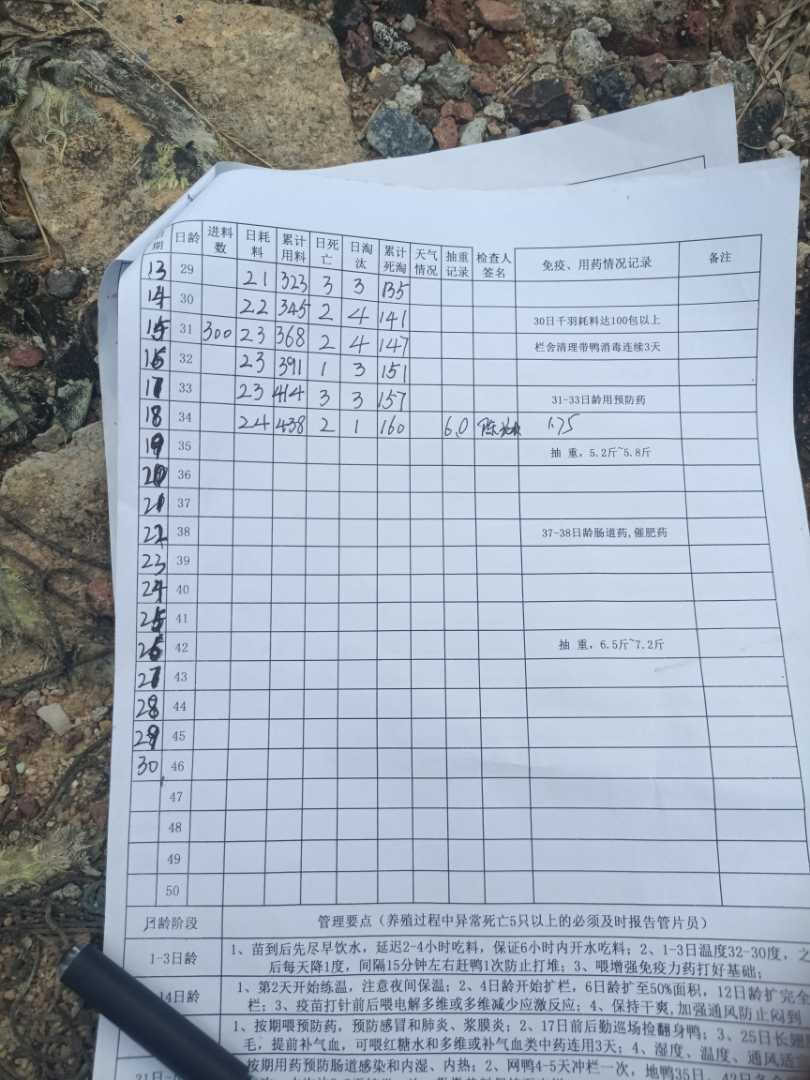 期 日龄 进料数 日耗料 累计用料 日死亡 日淘汰 累计死淘 天气情况 抽重记录 检查人签名 免疫、用药情况记录 备注
13 29 21 323 3 3 135
14 30 22 345 2 4 141 30日千羽耗料达100包以上
15 31 300 23 368 2 4 147 栏舍清理带鸭消毒连续3天
16 32 23 391 1 3 151
17 33 23 414 3 3 157 31-33日龄用预防药
18 34 24 438 2 1 160 6.0 陈 1.75
19 35 抽 重，5.2斤~5.8斤
20 36
21 37
22 38 37-38日龄肠道药,催肥药
23 39
24 40
25 41
26 42 抽 重，6.5斤~7.2斤
27 43
28 44
29 45
30 46
47
48
49
50
日龄阶段 管理要点（养殖过程中异常死亡5只以上的必须及时报告管片员）
1-3日龄 1、苗到后先尽早饮水，延迟2-4小时吃料，保证6小时内开水吃料；2、1-3日温度32-30度，之
后每天降1度，间隔15分钟左右赶鸭1次防止打堆；3、喂增强免疫力药打好基础；
14日龄 1、第2天开始练温，注意夜间保温；2、4日龄开始扩栏，6日龄扩至50%面积，12日龄扩完全
栏；3、疫苗打针前后喂电解多维或多维减少应激反应；4、保持干爽,加强通风防止闷到
1、按期喂预防药，预防感冒和肺炎、浆膜炎；2、17日前后勤巡场检翻身鸭；3、25日长翅
毛，提前补气血，可喂红糖水和多维或补气血类中药连用3天；4、湿度、温度、通风适
按期用药预防肠道感染和内湿、内热；2、网鸭4-5天冲栏一次，地鸭35日，42日